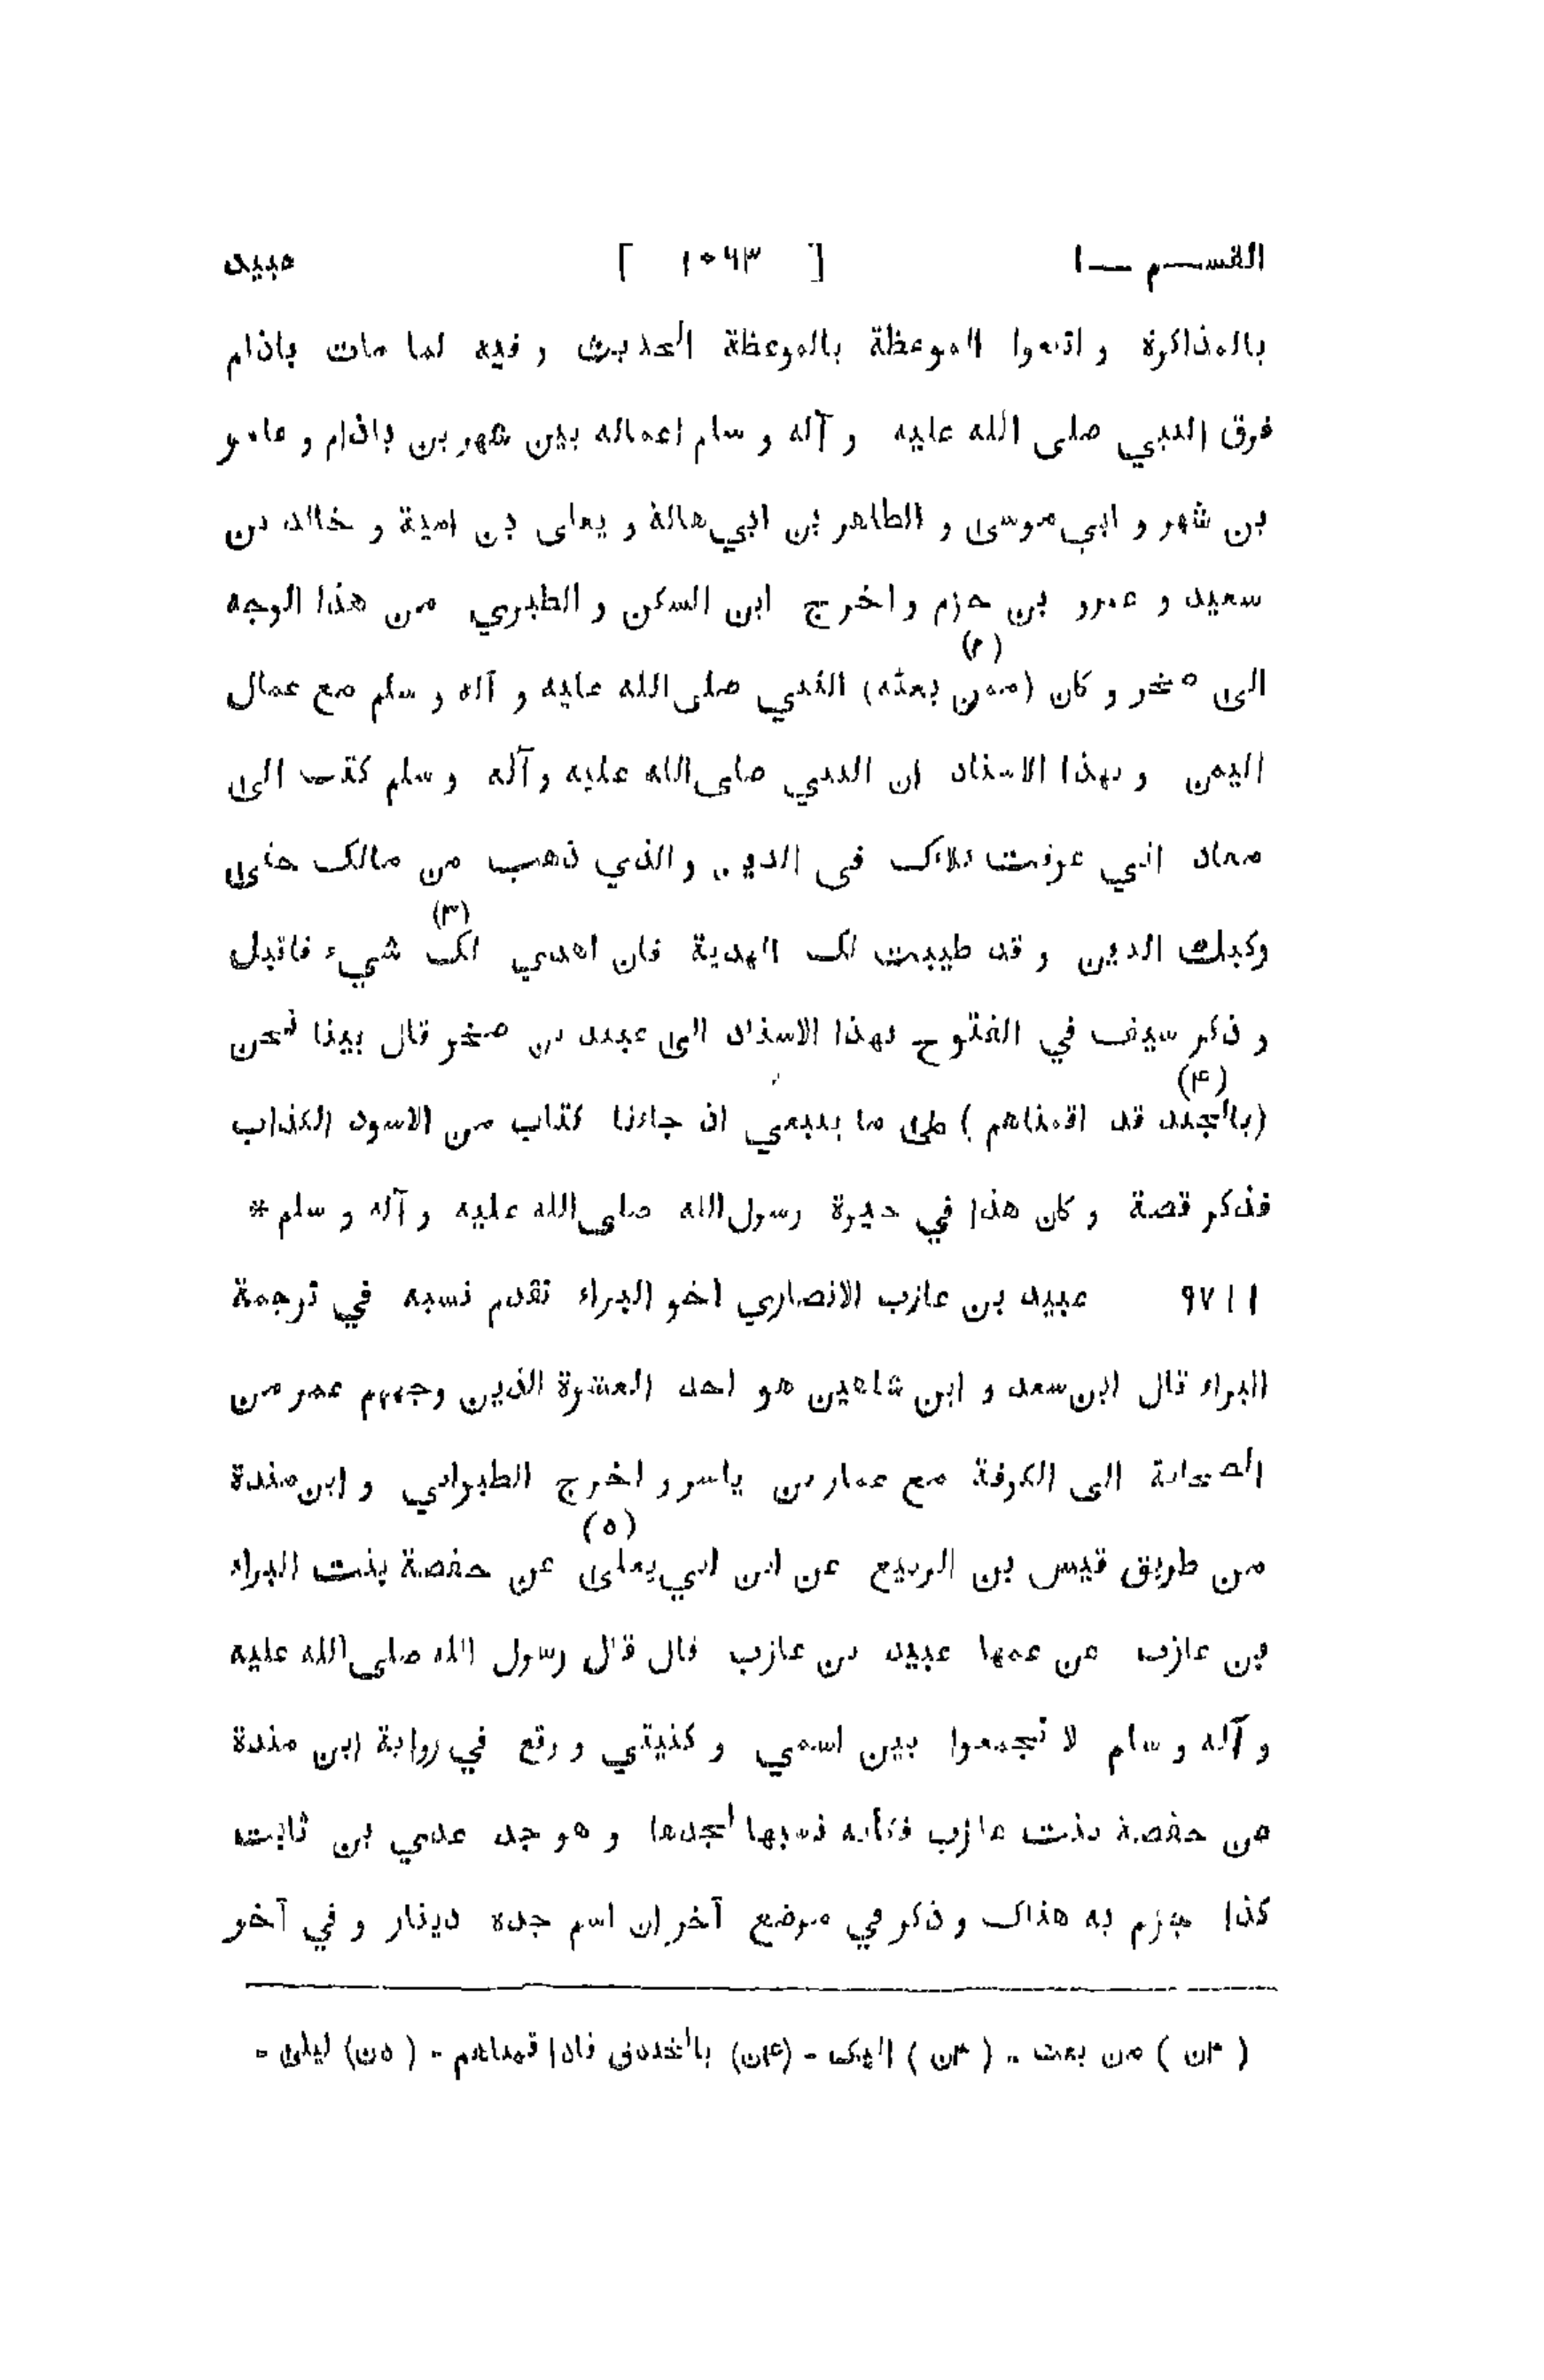 القســـم — ١ [ ١٠٦٣ ] عبيد
بالمذاكرة و اتبعوا الموعظة بالموعظة الحديث و فيه لما مات باذام
فرق النبي صلى الله عليه و آله و سلم اعماله بين شهر بن باذام و عامر
بن شهر و ابي موسى و الطاهر بن ابي هالة و يعلى بن امية و خالد بن
سعيد و عمرو بن حزم و اخرج ابن السكن و الطبري من هذا الوجه
الى صخر و كان (ممن بعثه) (٢) النبي صلى الله عليه و آله و سلم مع عمال
اليمن و بهذا الاسناد ان النبي صلى الله عليه و آله و سلم كتب الى
معاذ اني عرفت بلاك في الدين والذي ذهب من مالك حتى
ركبك الدين و قد طيبت لك الهدية فان اهدي لك (٣) شيء فاقبل
و ذكر سيف في الفتوح بهذا الاسناد الى عبيد بن صخر قال بينا نحن
(بالجند قد اقمناهم) (٤) على ما ينبغي اذ جاءنا كتاب من الاسود الكذاب
فذكر قصة و كان هذا في حيرة رسول الله صلى الله عليه و آله و سلم *
٩٧١١ عبيد بن عازب الانصاري اخو البراء تقدم نسبه في ترجمة
البراء قال ابن سعد و ابن شاهين هو احد العشرة الذين وجههم عمر من
الصحابة الى الكوفة مع عمار بن ياسر و اخرج الطبراني و ابن مندة
من طريق قيس بن الربيع عن ابن ابي يعلى (٥) عن حفصة بنت البراء
بن عازب عن عمها عبيد بن عازب قال قال رسول الله صلى الله عليه
و آله و سلم لا تجمعوا بين اسمي و كنيتي و وقع في رواية ابن مندة
عن حفصة بنت عازب فكأنه نسبها لجدها و هو جد عدي بن ثابت
كذا جزم به هذاك و ذكر في موضع آخر ان اسم جده دينار و في آخر
( ٢ن ) من بعث - ( ٣ن ) اليك - (٤ن) بالخدمى فاذا قمناهم - ( ٥ن) ليلى -